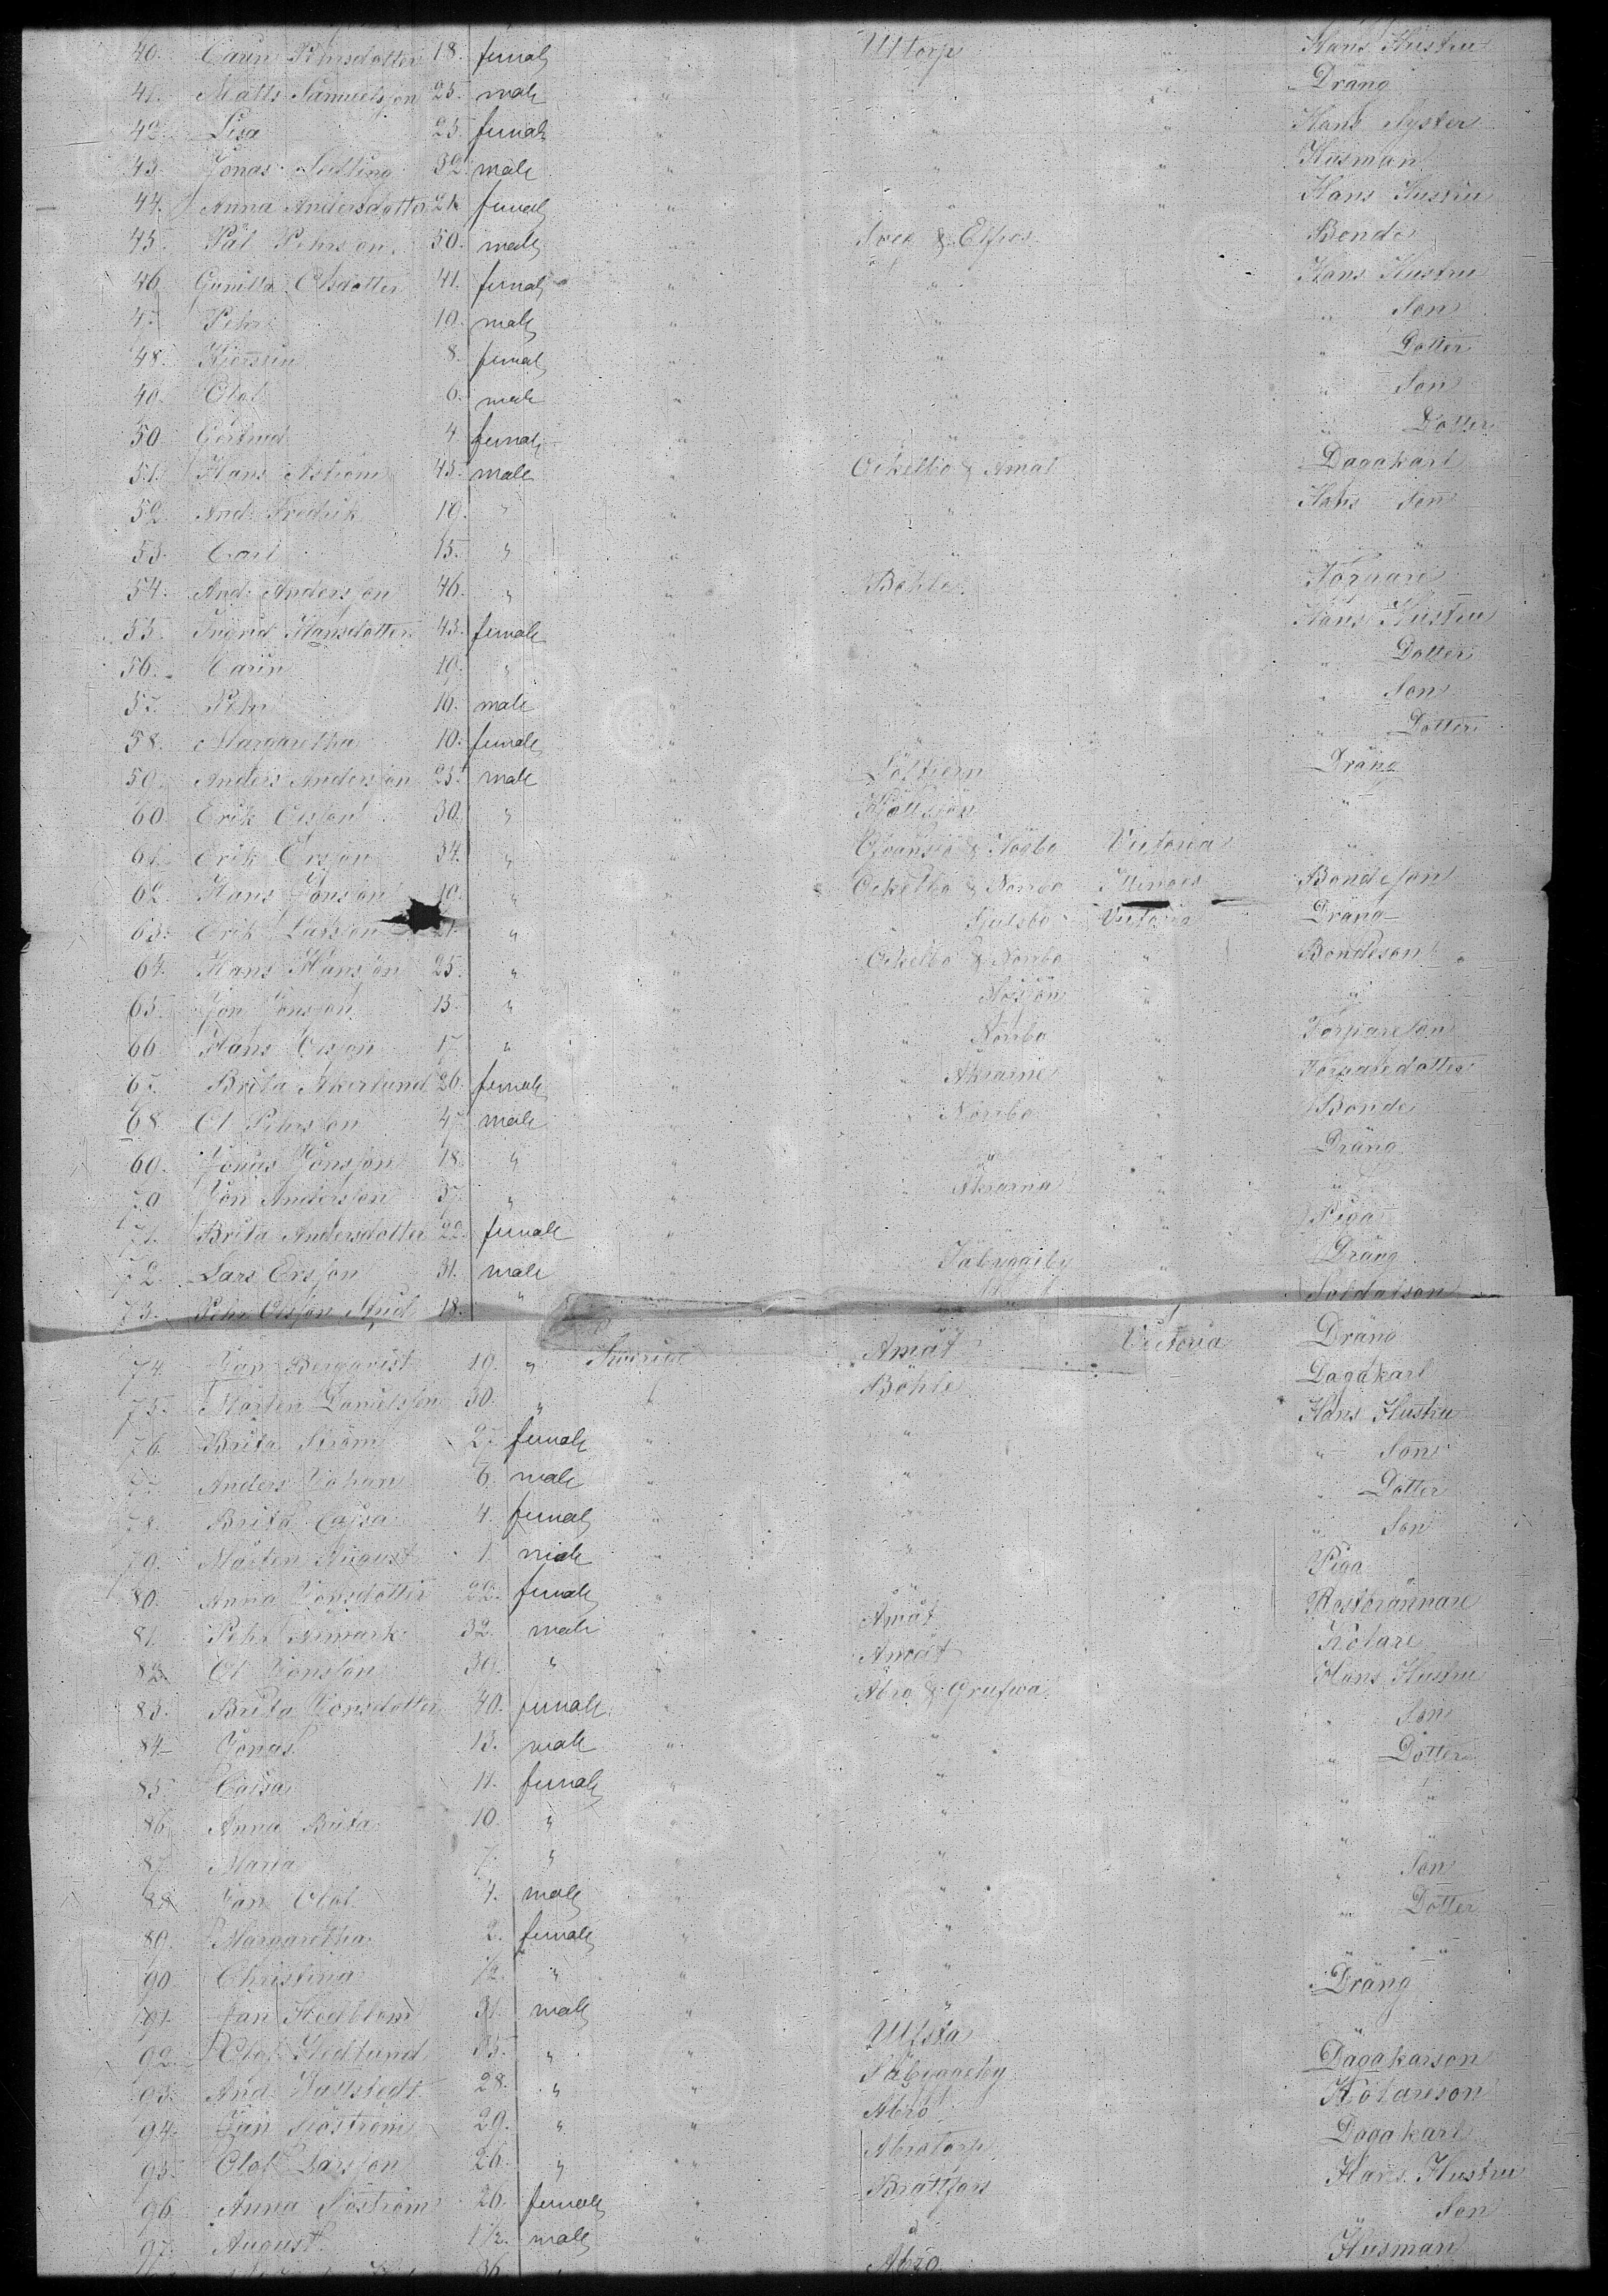 40. Carin Pehrsdotter 18. female " Uttorp " Hans Hustru
41. Matts Samuelsson 25. male " " " Dräng
42. Lisa 25. female " " " Hans Syster
43. Jonas Sedling 32. male " " " Husman
44. Anna Andersdotter 24 female " " " Hans Hustru
45. Pål Pehrson 50. male " & Elfros Bonde
46. Gunilla Olsdotter 41. female " " Hans Hustru
47. Pehr 10. male " " " Son
48. Kierstin 8. female " " " Dotter
49. Olof 6. male " " " Son
50. Gertrud 4. female " " " Dotter
51. Hans Åström 45. male " Ockelbo & Åmot Dagakarl
52. And. Fredrik 19. " " " Hans Son
53. Carl 15. " " " " "
54. And. Andersson 46. " " Böhle Torpare
55. Ingrid Hansdotter 43. female " " Hans Hustru
56. Carin 19. " " " " Dotter
57. Pehr 16. male " " " Son
58. Margaretha 10. female " " " Dotter
59. Anders Andersson 25. male " Dräng
60. Erik Olsson 30. " " "
61. Erik Ersson 34. " " & Högbo Victoria "
62. Hans Jönsson 19. " " Ockelbo & Norrbo Illinois Bondeson
63. Erik Larsson 21. " " Victoria Dräng
64. Hans Hansson 25. " " Ockelbo & Norrbo " Bondeson
65. Jon Jonsson 15. " " " "
66. Hans Olsson 17 " " " Norrbo " Torpareson
67. Brita Åkerlund 26. female " " " Torparedotter
68. Ol. Pehrsson 47. male " " Norrbo " Bonde
69. Jonas Jönsson 18. " " " " Dräng
70. Jon Andersson 37. " " " " "
71. Brita Andersdotter 22. female " " " Piga
72. Lars Ersson 31. male " Säbyggeby " Dräng
73. Pehr Olsson 18. " " Soldatson
74. Jan Bergqvist 19. " Åmot Victoria Dräng
75. Mårten Danielsson 30. " " Böhle Dagakarl
76. Brita Ström 27. female " " Hans Hustru
77. Anders Johan 6. male " " " Son
78. Brita Cajsa 4. female " " " Dotter
79. Mårten August 1 male " " " Son
80. Anna Jonsdotter 22. female " " Piga
81. Pehr 32. male " Åmot Rostbrännare
82. Ol. Jonsson 39. " " Åmot Kolare
83. Brita Jonsdotter 40. female " Åbro & Grufwa Hans Hustru
84. Jonas 13. male " " " Son
85. Cajsa 11. female " " " Dotter
86. Anna Brita 10. " " " " "
87. Maria 7. " " " " "
88. Jan Olof 4. male " " " Son
89. Margaretha 2. female " " " Dotter
90. Christina 1/2. " " " " "
91. Jan Hedblom 31. male " " Dräng
92. Olof Hedlund 35. " " Ulfsta "
93. And. 28. " " Säbyggeby Dagakarson
94. Jan Sjöström 29. " " Åbro Kolareson
95. Olof Larsson 26. " " Åbrotorp Dagakarl
96. Anna Sjöström 26. female " Brattfors Hans Hustru
97. August 1 1/2. male " " " Son
36. Åbro Husman